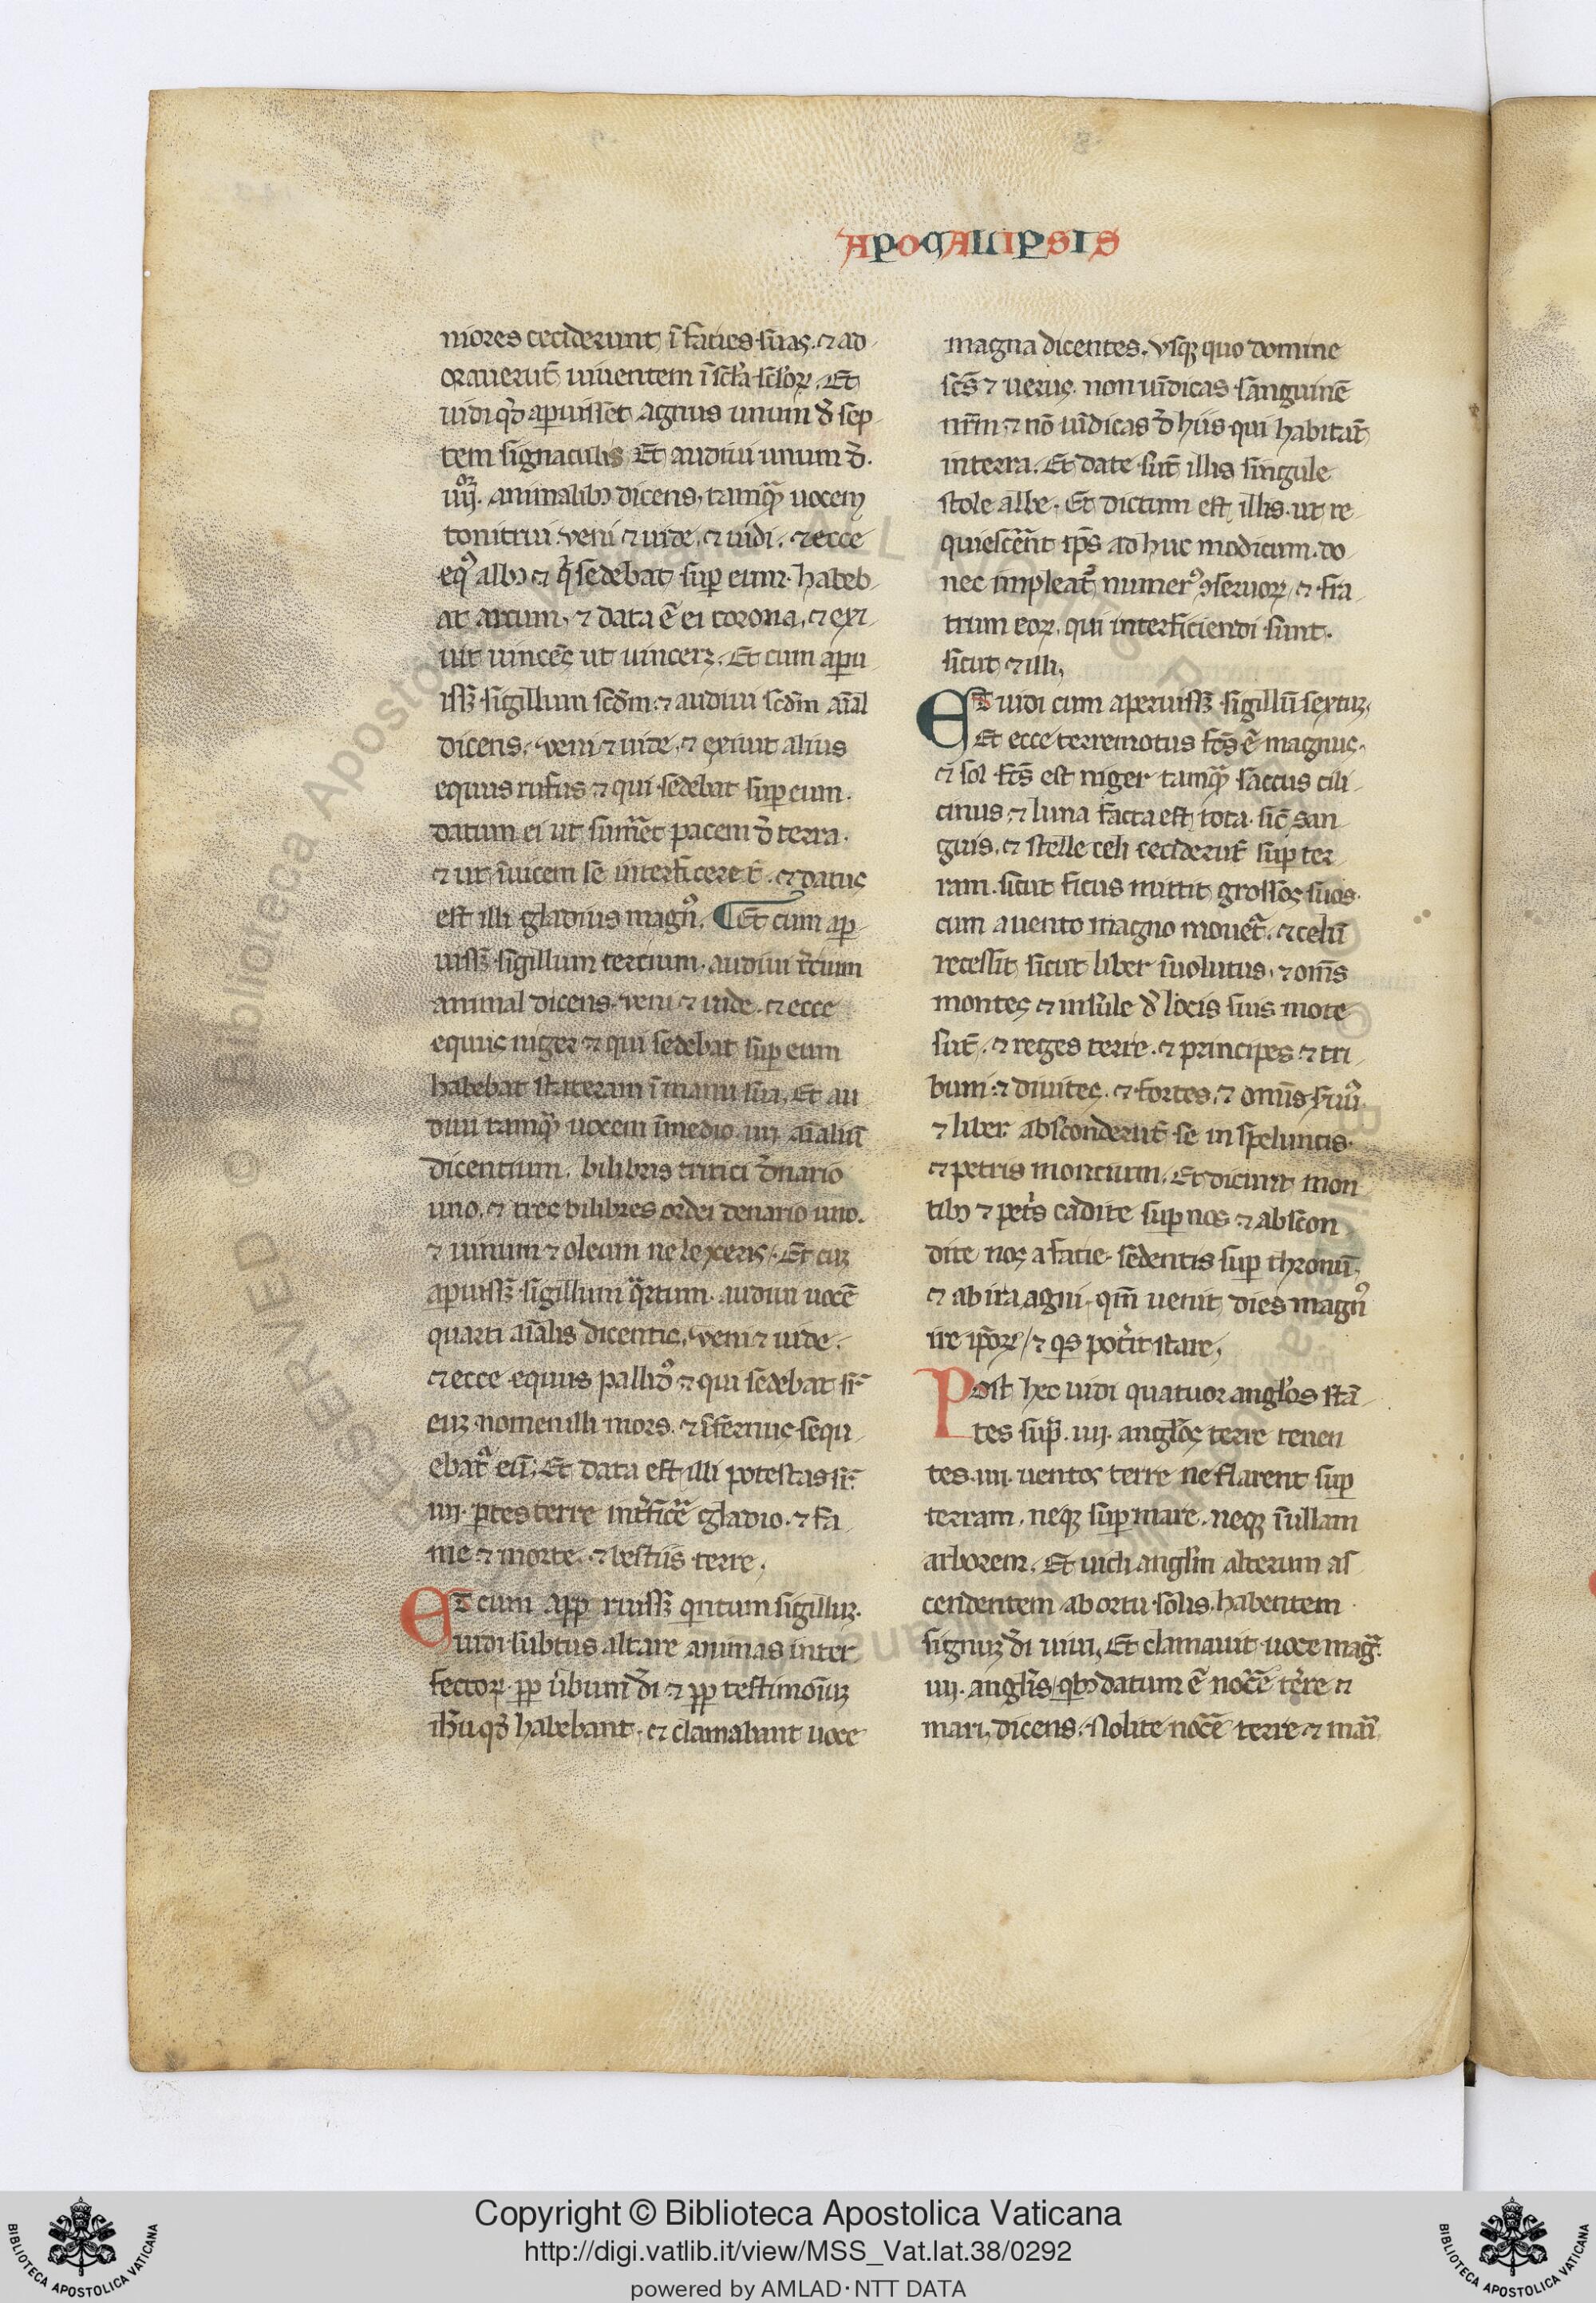 APOCALIPSIS
niores ceciderunt ī facies suas. ⁊ ad
orauerūt uiuentem ī scl̄a sclōꝝ. Et
uidi qd̓ aꝑuisset agnus unum d̄ sep
tem signaculis Et audiui unum d̄.
iiijoꝝ. animalibꝫ dicens, tamqᷓ uocem
tonitrui. veni ⁊ uide. ⁊ uidi. ⁊ ecce
eqꝰ albꝫ ⁊ q̓ sedebat suꝑ eum. habeb
at arcum, ⁊ data ē ei corona, ⁊ exi
uit uincēs ut uinceꝫ. Et cum aꝑu
issꝫ sigillum scd̄m. ⁊ audiui scd̄m aīal
dicens. veni ⁊ uide. ⁊ exiuit alius
equus rufus ⁊ qui sedebat suꝑ eum.
datum ei ut sumēt pacem d̄ terra.
⁊ ut īuicem se interficerēt. ⁊ datus
est illi gladius magnꝰ. Et cum aꝑ
uissꝫ sigillum tertium. audiui t̄cium
animal dicens. veni ⁊ uide. ⁊ ecce
equus niger ⁊ qui sedebat suꝑ eum
habebat stateram ī manu sua. Et au
diui tamqᷓ uocem īmedio. iiij. aīaliū
dicentium. bilibris tritici d̄nario
uno. ⁊ tres bilibres ordei denario uno.
⁊ uinum ⁊ oleum ne lexeris. Et cuꝫ
aꝑuissꝫ sigillum qᷓrtum. audiui uocē
quarti aīalis dicentis. veni ⁊ uide.
⁊ ecce equus pallidꝰ ⁊ qui sedebat sr̄
euꝫ nomen illi mors. ⁊ īfernus sequ
ebat᷑ eū. Et data est illi potestas sr̄
iiij. ꝑtes terre int̓ficē gladio. ⁊ fa
me ⁊ morte. ⁊ bestiis terre.
ET cum aꝑꝑ ruissꝫ qintum sigilluꝫ.
uidi subtus altare animas inter
fectoꝝ. ꝓꝑ ūbum d̄i ⁊ ꝓꝑ testimoniuꝫ
ih̄u qd̓ habebant. ⁊ clamabant uoce
magna dicentes. vsqꝫ quo domine
sc̄s ⁊ uerus. non uīdicas sanguinē
nr̄m ⁊ nō uīdicas d̄ hiis qui habitāt
interra. Et date sūt illis singule
stole albe. Et dictum est illis. ut re
quiescēnt ip̄s ad huc modicum. do
nec impleat᷑ numerꝰ ꝯseruoꝝ ⁊ fra
trum eoꝝ. qui interficiendi sunt.
sicut ⁊ illi,
ET uidi cum aperuissꝫ sigillū sextuꝫ,
Et ecce terremotus fc̄s ē magnus.
⁊ sol fc̄s est niger tamqᷓ saccus cili
cinus, ⁊ luna facta est tota sic̄ san
guis. ⁊ stelle celi ceciderūt suꝑ ter
ram. sicut ficus mittit grossos suos.
cum auento magno mouet᷑. ⁊ celū
recessit sicut liber īuolutus. ⁊ om̄s
montes ⁊ insule d̄ locis suis mote
sūt. ⁊ reges terre. ⁊ principes ⁊ tri
buni ⁊ diuites. ⁊ fortes. ⁊ omīs suꝰ
⁊ liber absconderūt se in speluncis.
⁊ petris montium. Et dicunt mon
tibꝫ ⁊ pet̓s cadite suꝑ nos ⁊ abscon
dite nos a facie sedentis suꝑ thronū.
⁊ ab ira agni. qm̄ uenit dies magnꝰ
ire ip̄oꝝ, ⁊ qs̓ pot̓it stare,
Post hec uidi quatuor angl̓os stā
tes sup̄. iiij. angl̓os terre tenen
tes. iiij. uentos terre ne flarent suꝑ
terram. neqꝫ suꝑ mare. neqꝫ īullam
arborem. Et uidi angl̄m alterum as
cendentem ab ortu solis. habentem
signuꝫ d̄i uiui. Et clamauit uoce magᷓ.
iiij. angl̓is, qibꝫ datum ē nocē t̓re ⁊
mari. dicens. Nolite nocē terre ⁊ maī
Copyright © Biblioteca Apostolica Vaticana
http://digi.vatlib.it/view/MSS_Vat.lat.38/0292
powered by AMLAD·NTT DATA
BIBLIOTECA APOSTOLICA VATICANA
BIBLIOTECA APOSTOLICA VATICANA